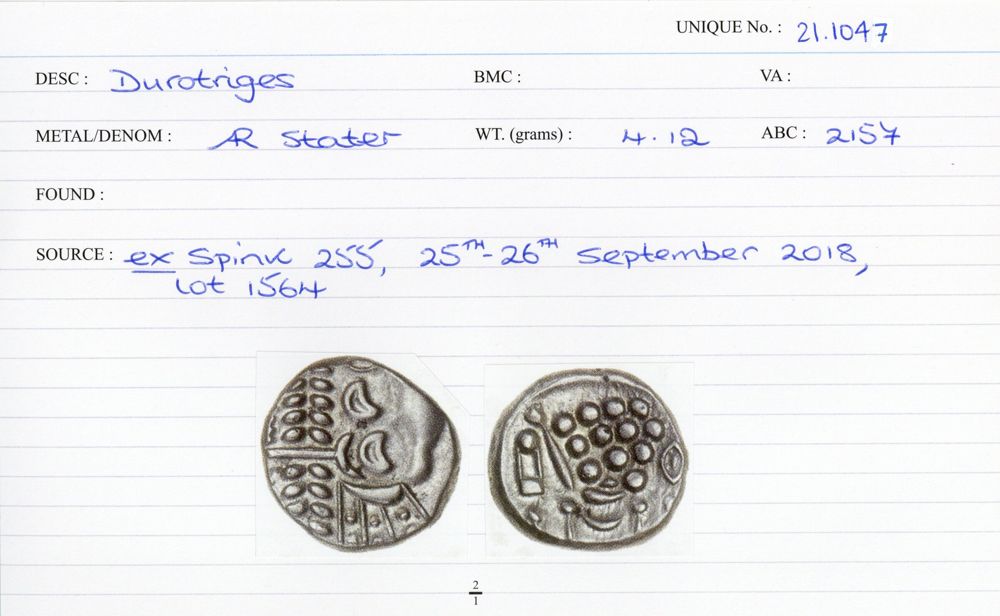 UNIQUE No. : 21.1047
DESC : Durotriges BMC : VA :
METAL/DENOM : AR Stater WT. (grams) : 4.12 ABC : 2157
FOUND :
SOURCE : ex Spink 255, 25TH-26TH September 2018,
Lot 1564
2
1